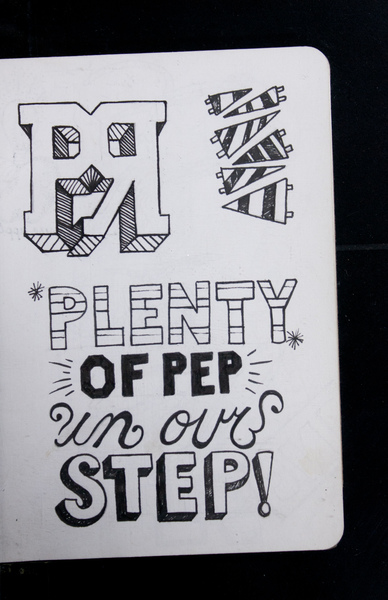 PLENTY
OF PEP
in our
STEP!